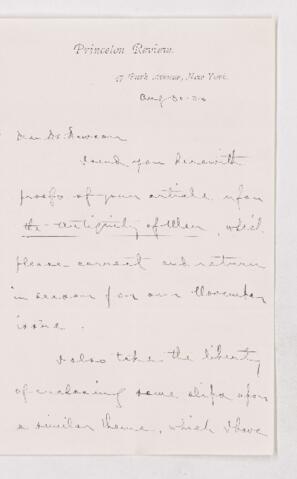 Princeton Review.
Park Avenue, New York.
Aug 30
Dear Dr
I send you herewith
proofs of your article upon
the Antiquity of Man, which
please correct and return
in season for our November
issue.
I also take the liberty
of enclosing some slips upon
a similar theme, which I have